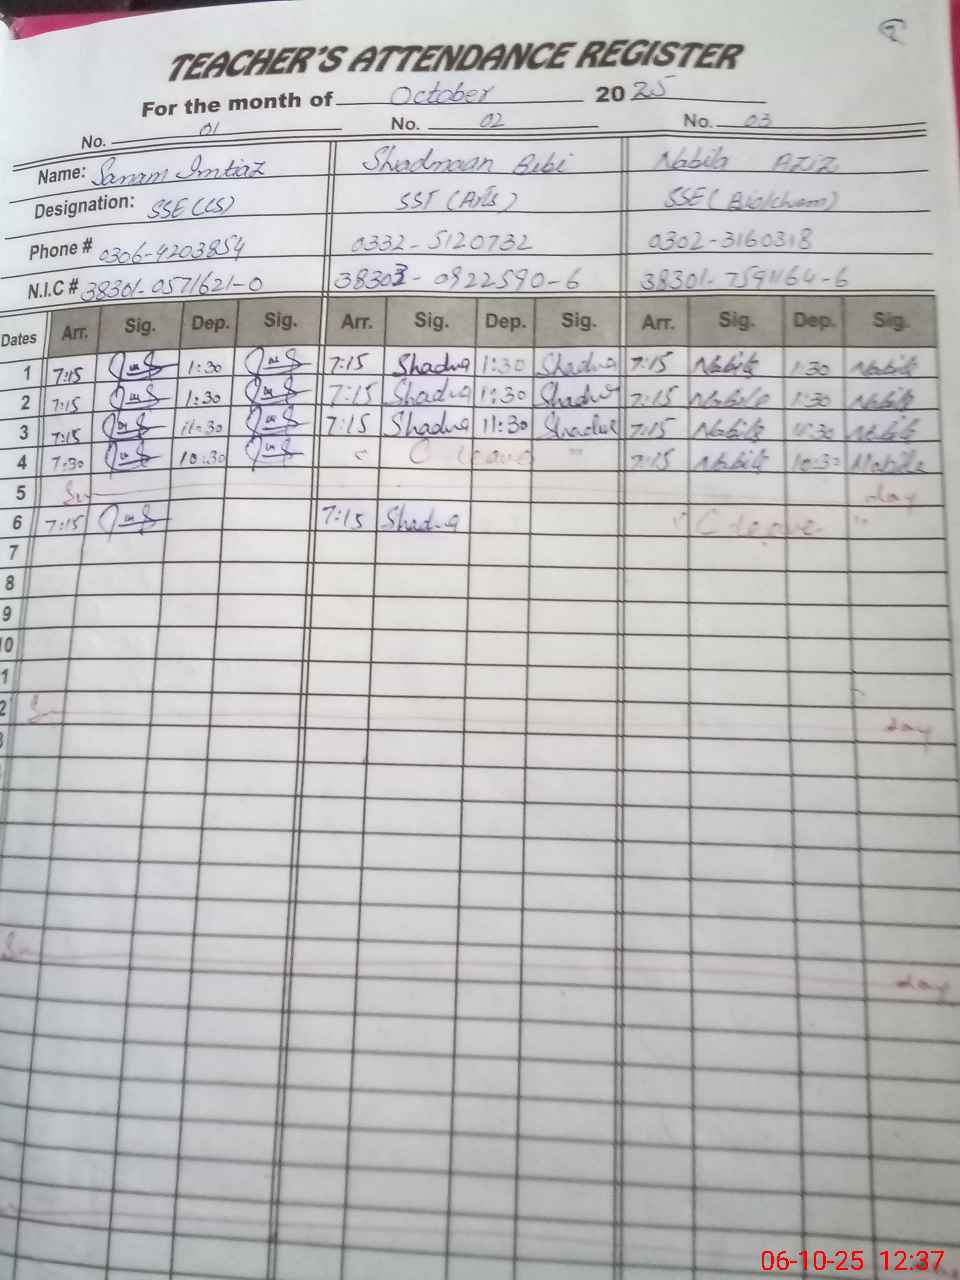 TEACHER'S ATTENDANCE REGISTER
For the month of October 2025
No. 01 No. 02 No. 03
Name: Sanam Imtiaz Shadmaan Bibi Nabila Aziz
Designation: SSE (CS) SST (Arts) SSE (Bio/chem)
Phone # 0306-4203854 0332-5120732 0302-3160318
N.I.C # 38301-0571621-0 38303-0922590-6 38301-7591164-6
Dates Arr. Sig. Dep. Sig. Arr. Sig. Dep. Sig. Arr. Sig. Dep. Sig.
1 7:15 1:30 7:15 Shadma 1:30 Shadma 7:15 Nabila 1:30 Nabila
2 7:15 1:30 7:15 Shadma 1:30 Shadma 7:15 Nabila 1:30 Nabila
3 7:15 11:30 7:15 Shadma 11:30 Shadma 7:15 Nabila 11:30 Nabila
4 7:30 10:30 " C leave " 7:15 Nabila 10:30 Nabila
5 Sun day
6 7:15 7:15 Shadma " C leave "
7
8
9
10
1
2 Sun day
3
Sun day
06-10-25 12:37